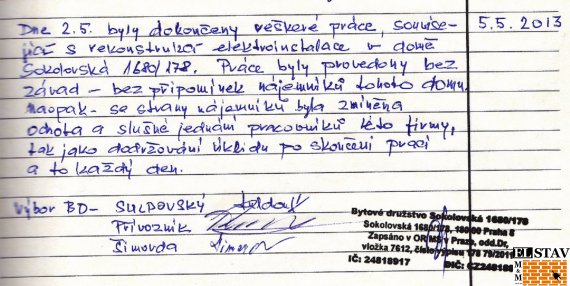 Dne 2.5. byly dokončeny veškeré práce, souvise-
5.5.2013
jící s rekonstrukcí elektroinstalace v domě
Sokolovská 1680/178. Práce byly provedeny bez
závad – bez připomínek nájemníků tohoto domu.
Naopak – se strany nájemníků byla zmíněna
ochota a slušné jednání pracovníků této firmy,
tak jako dodržování úklidu po skončení prací
a to každý den.
Výbor BD – SULDOVSKÝ
Přívozník
Šimovda
Bytové družstvo Sokolovská 1680/178
Sokolovská 1680/178, 180 00 Praha 8
Zapsáno v OR MS v Praze, odd.Dr,
vložka 7612,
IČ: 24818917 DIČ:
ELSTAV
M&M